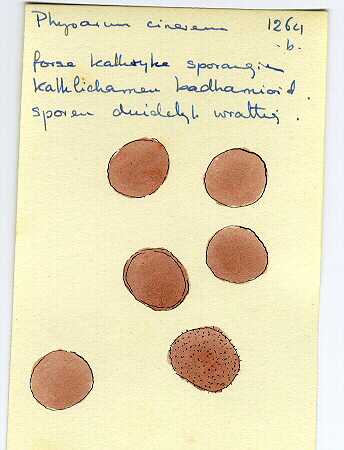 Physarum cinereum 1264
-b-
forse kalkrijke sporangien
kalklichamen badhamioid.
sporen duidelijk wrattig.